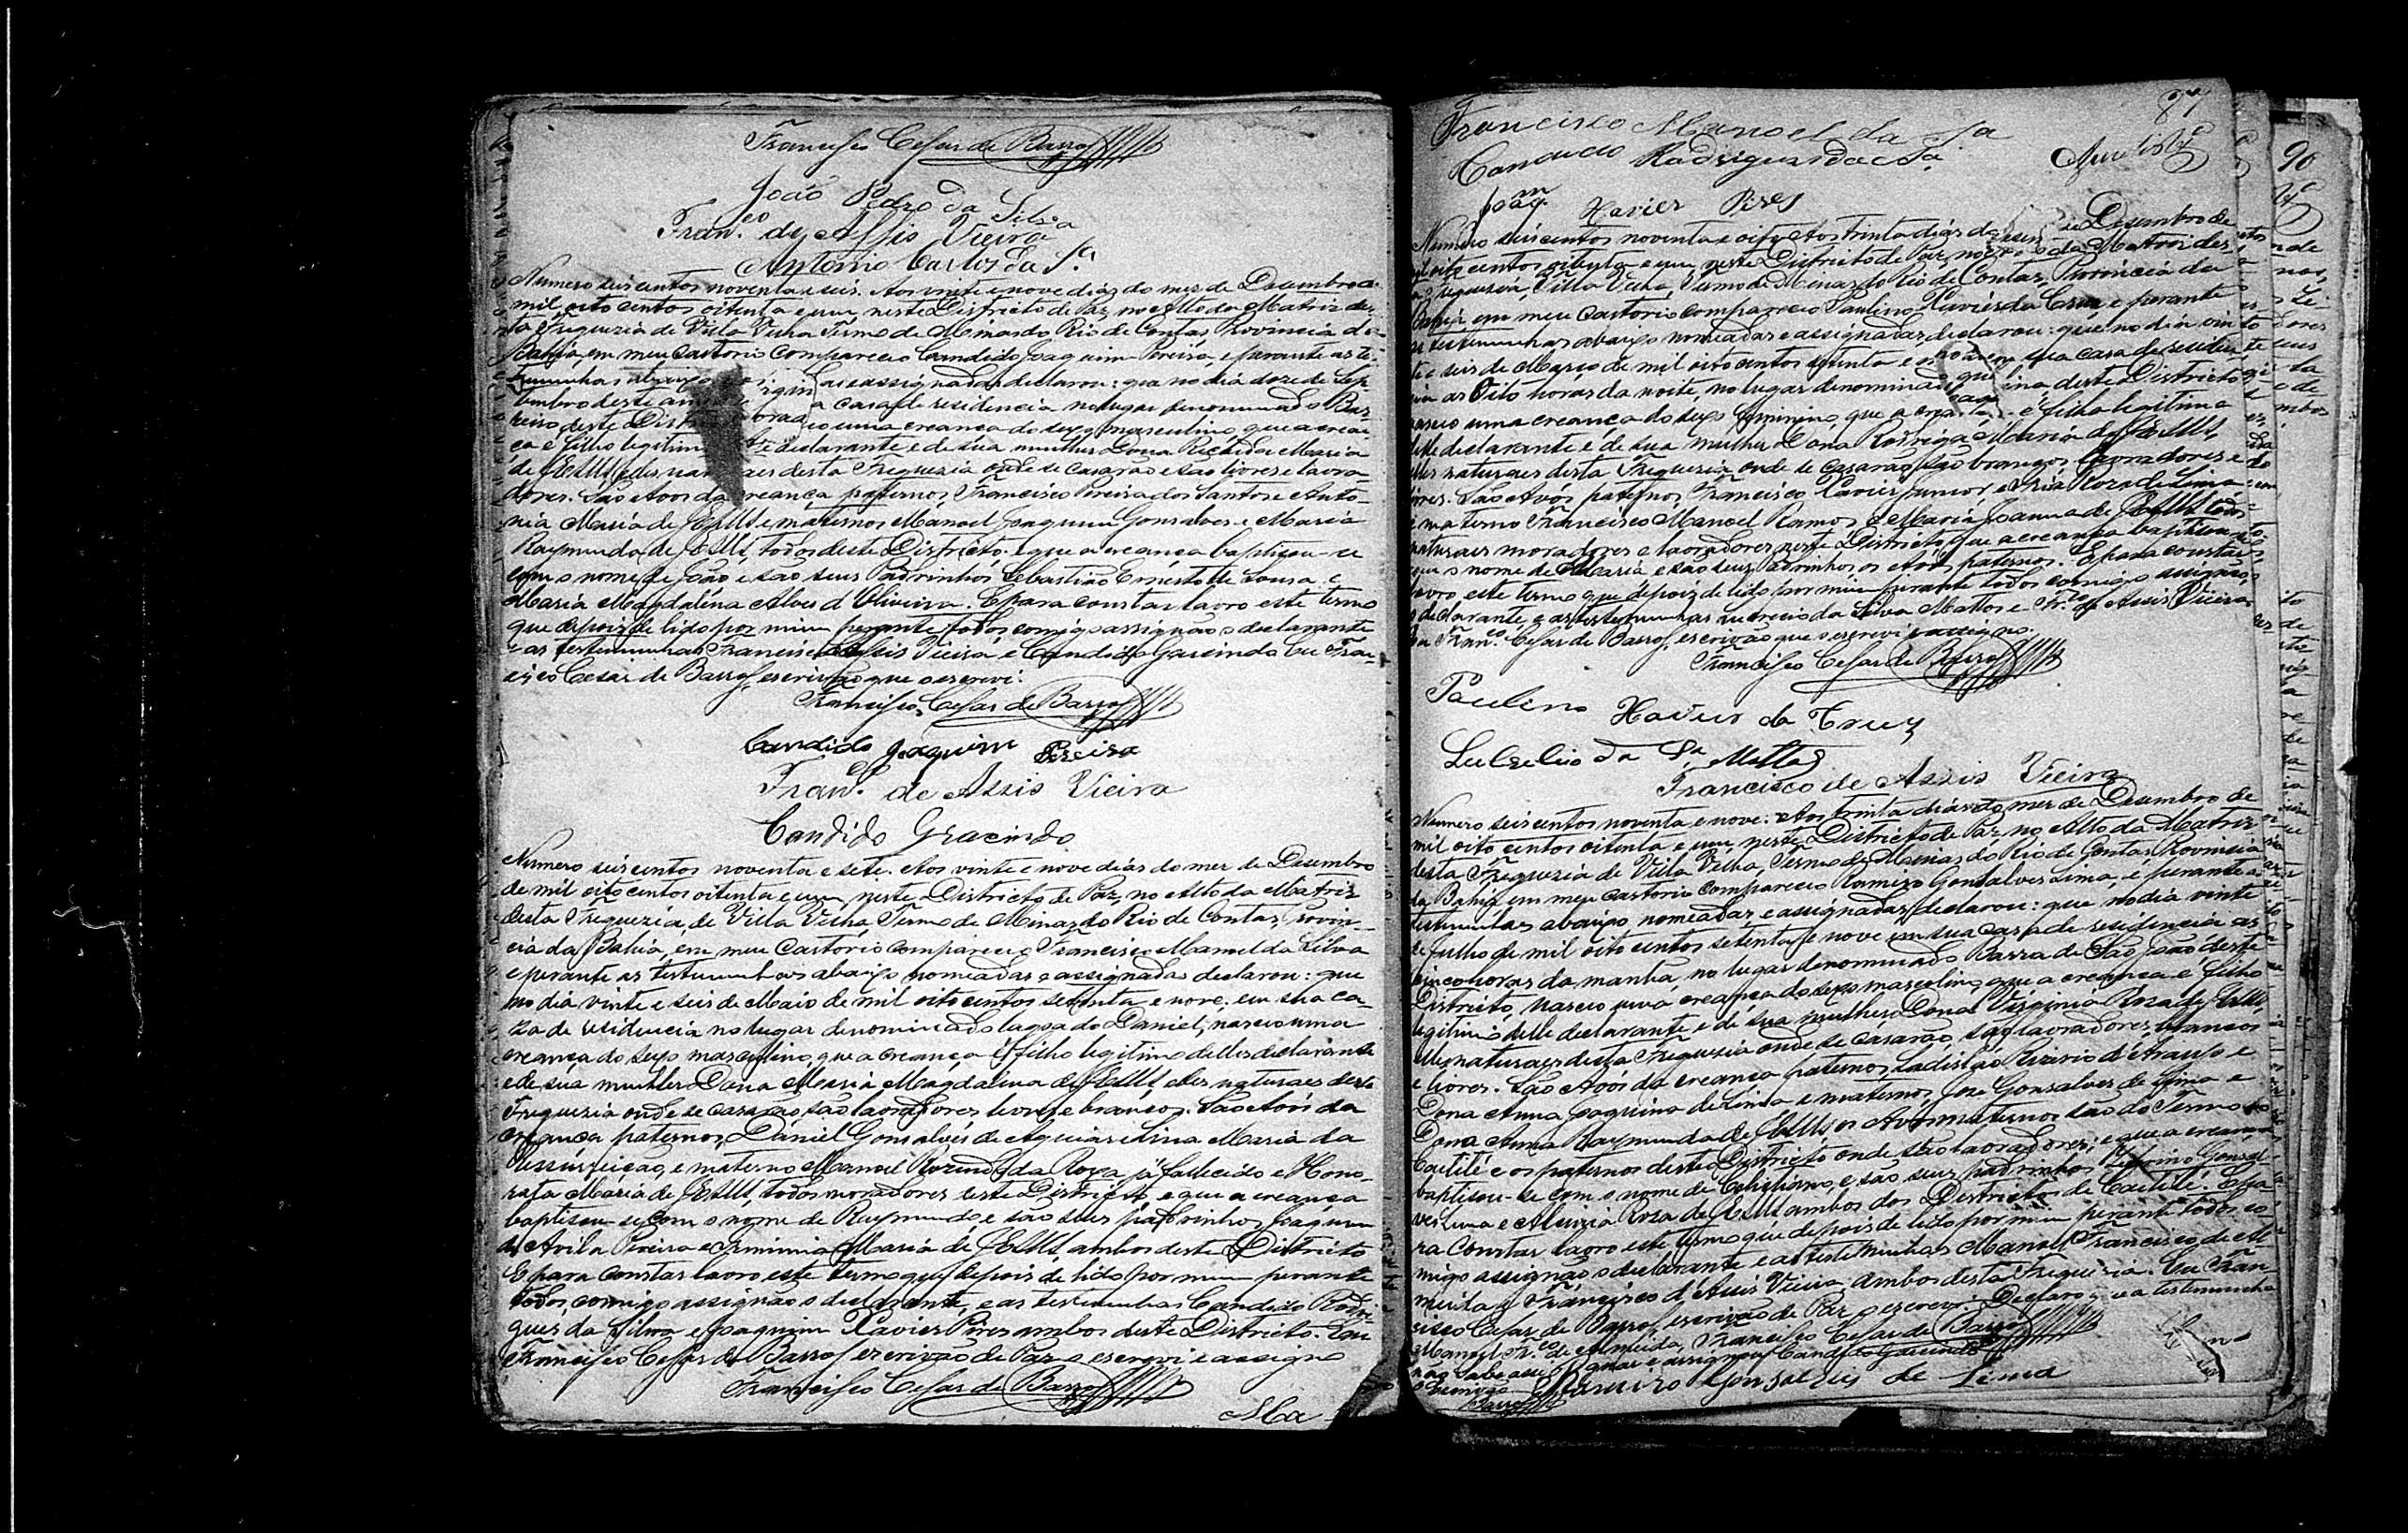 Francisco Cesar de Barros
João Pedro da Silva
Fran.co de Assis Vieira
Antonio Carlos da S.a
Numero seis centos noventa e seis. Aos vinte e nove dias do mes de Desembro de
mil oito centos oitenta e um neste Districto de Paz, no Alto da Matriz des-
ta Freguezia de Villa Velha Termo de Minas do Rio de Contas Provincia da
Bahia, em meu Cartorio compareceo Candido Joaquim Pereira, e perante as tes-
temunhas abaixo e assignadas declarou: que no dia doze de Sep
tembro deste a casa de residencia no lugar denominado Bar
reiro deste Dist uma creança do sexo masculino, que a crean-
ça é filho legitimo declarante e de sua mulher Dona Maria
de JESUS, elles naturaes desta Freguezia onde se casarão e são livres e lavra-
dores. São Avos da creança paternos Francisco Pereira dos Santos e Anto-
nia Maria de JESUS e maternos Manoel Joaquim Gonsalves e Maria
Raymunda de JESUS, todos deste Districto: e que a creança baptisou-se
com o nome de João e são seus Padrinhos Sebastião Ernesto de Sousa e
Maria Magdalena Alves d'Oliveira. E para constar lavro este termo
que depois de lido por mim perante todos, comigo assignão o declarante
e as testemunhas Francisco de Assis Vieira e Candido Gracindo Eu Fran-
cisco Cesar de Barros, escrivão que o escrevi.
Francisco Cesar de Barros
Candido Joaquim Pereira
Fran.co de Assis Vieira
Candido Gracindo
Numero seis centos noventa e sete. Aos vinte e nove dias do mes de Desembro
de mil oito centos oitenta e um neste Districto de Paz, no Alto da Matriz
desta Freguezia, de Villa Velha, Termo de Minas do Rio de Contas, Provin-
cia da Bahia, em meu Cartorio compareceo Francisco Manoel da Silva
e perante as testemunhas abaixo nomeadas e assignadas declarou: que
no dia vinte e seis de Maio de mil oito centos setenta e nove: em sua ca-
za de residencia no lugar denominado Lagoa do Daniel, nasceo uma
creança do sexo masculino, que a creança é filho legitimo delles declarante
e de sua mulher Dona Maria Magdalena de JESUS, elles naturaes desta
Freguezia onde se casarão são lavradores livres e brancos. São Avós da
creança paternos, Daniel Gonsalves de Aguiar e Lina Maria da
Ressurreição, e materno Manoel da Roxa já fallecido e Hono-
rata Maria de JESUS, todos moradores neste Districto, e que a creança
baptisou-se com o nome de Raymundo e são seus padrinhos Joaquim
d'Avila Pereira e Erminia Maria de JESUS ambos deste Districto
E para constar lavro este termo que depois de lido por mim perante
todos, comigo assignão o declarante, e as testemunhas Candido Rodri-
gues da Silva e Joaquim Xavier Pires ambos deste Districto. Eu
Francisco Cesar de Barros escrivão de Paz o escrevi e assigno
Francisco Cesar de Barros
Ma
87
Francisco Manoel da S.a
Candido Rodrigues da S.a
Joaq.m Xavier Pires
Numero seis centos noventa e oito Aos trinta dias do mes de Desembro de
mil oito centos oitenta e um neste Districto de Paz, no Alto da Matriz des-
ta Freguezia, Villa Velha, Termo de Minas do Rio de Contas, Provincia da
Bahia em meu Cartorio compareceo Paulino Xavier da Cruz e perante
as testemunhas abaixo nomeadas e assignadas declarou: que no dia vin
te e seis de Março de mil oito centos setenta e sua casa de residen
cia as Oito horas da noite, no lugar denominado deste Districto
nasceo uma creança do sexo feminino, que a creança é filha legitima
delle declarante e de sua mulher Dona Rodriga Maria de JESUS,
elles naturaes desta Freguezia onde se casarão são brancos lavradores e
livres. São Avos paternos Francisco Xavier Junior, e Anna Roza de Lima
e materno Francisco Manoel Ramos e Maria Joanna de JESUS todos
naturaes moradores e lavradores neste Districto, que a creança baptisou-se
com o nome de Maria e são seus Padrinhos os Avós paternos. E para constar
lavro este termo que depois de lido por mim perante todos comigo assignão
o declarante, e as testemunhas da Silva Mattos e Fr.co de Assis Vieira
Eu Fran.co Cesar de Barros, escrivão que o escrevi e assigno.
Francisco Cesar de Barros
Paulino Xavier da Cruz
da S.a Mattos
Francisco de Assis Vieira
Numero seis centos noventa e nove: Aos trinta dias do mes de Desembro de
mil oito centos oitenta e um, neste Districto de Paz, no Alto da Matriz
desta Freguezia de Villa Velha, Termo de Minas do Rio de Contas, Provincia
da Bahia em meu Cartorio compareceo Ramiro Gonsalves Lima, e perante as
testemunhas abaixo nomeadas, e assignadas declarou: que no dia vinte
de Julho de mil oito centos setenta e nove em sua casa de residencia as
cinco horas da manhã, no lugar denominado Barra de São João deste
Districto, nasceo uma creança do sexo masculino, que a creança é filho
legitimo delle declarante, e de sua mulher Dona Virginia Roza de JESUS,
elles naturaes desta Freguezia onde se casarão, são lavradores, brancos
e livres. São Avós da creança paternos, Ladislao de Araujo e
Dona Anna Joaquina de Lima e maternos José Gonsalves de Lima e
Dona Anna Raymunda de JESUS os Avós maternos são do Termo
Caetité e os paternos deste Districto onde são lavradores; e que a creança
baptisou-se com o nome de e são seus padrinhos Gonsal-
ves Lima e Roza de JESUS ambos dos Districtos de Caetité. E pa-
ra constar lavro este termo que depois de lido por mim perante todos co-
migo assignão o declarante e as testemunhas Manoel Francisco de Al-
meida e Francisco d'Assis Vieira ambos desta Freguezia. Eu Fran-
cisco Cesar de Barros, escrivão de Paz o escrevi. Declaro que a testemunha
Manoel Fr.co de Almeida, Francisco Cesar de Barros
não sabe assignar e assignou Candido Gracindo
O Escrivão Ramiro Gonsalves de Lima
Barros
90